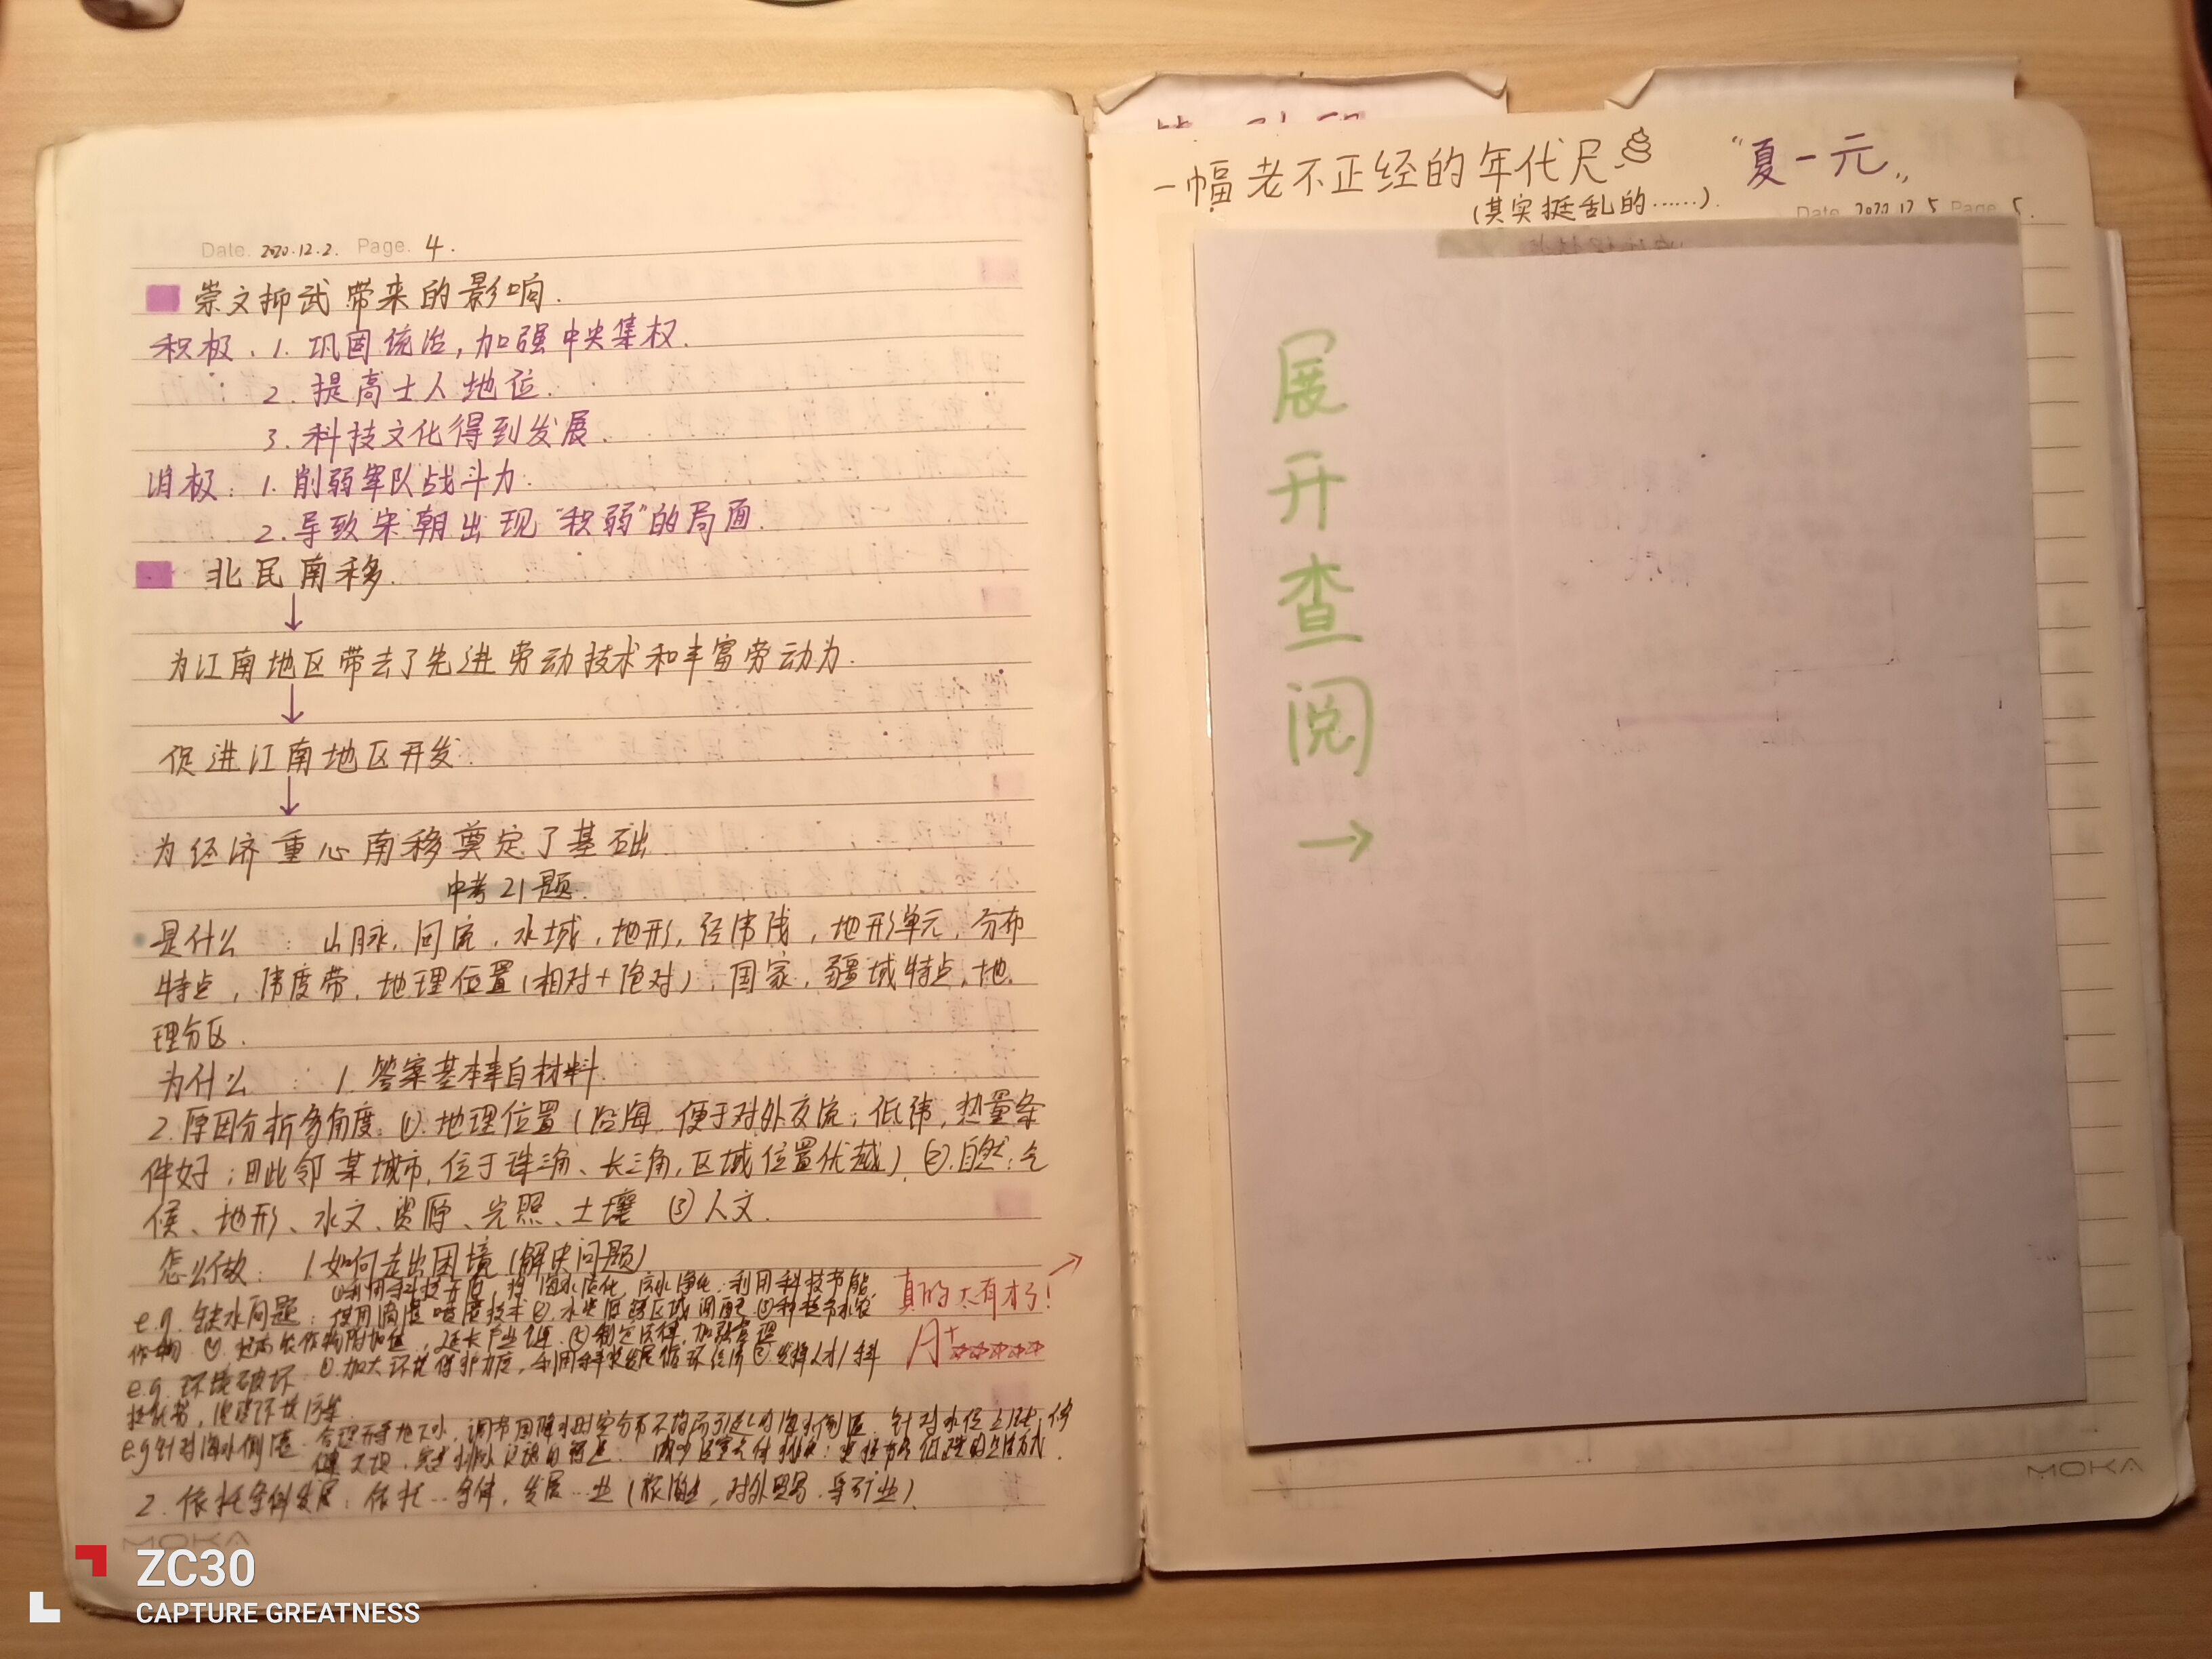 Date. 2020.12.2. Page. 4.
崇文抑武带来的影响.
积极. 1. 巩固统治,加强中央集权.
2. 提高士人地位.
3. 科技文化得到发展.
消极: 1. 削弱军队战斗力.
2. 导致宋朝出现“积弱”的局面.
北民南移.
↓
为江南地区带去了先进劳动技术和丰富劳动力.
↓
促进江南地区开发.
↓
为经济重心南移奠定了基础.
中考21题.
是什么 : 山脉, 河流, 水域, 地形, 经纬线, 地形单元, 分布
特点, 纬度带, 地理位置(相对+绝对), 国家, 疆域特点, 地
理分区.
为什么 : 1. 答案基本来自材料.
2. 原因分析多角度: ①. 地理位置(沿海, 便于对外交流; 低纬, 热量条
件好; 毗邻某城市, 位于珠三角、长三角, 区域位置优越) ②. 自然: 气
候、地形、水文、资源、光照、土壤 ③ 人文.
怎么做: 1. 如何走出困境(解决问题)
海水淡化, 利用科技节能
e.g. 缺水问题: 使用滴灌喷灌技术 ②.
作物 ④. 提高农作物附加值, 延长产业链. ⑤ 制定法律, 加强管理
e.g. 环境破坏: ①. 加大环境保护力度, 利用科技发展循环经济
e.g 针对海水倒灌: 合理开采地下水,
2. 依托条件发展: 依托…条件, 发展…业(旅游业, 对外贸易
真的太有才了!
A+☆☆☆☆☆
一幅老不正经的年代尺
(其实挺乱的……).
“夏一元”
Date. 2020.12.5 Page. 5.
展开查阅→
MOKA
MOKA
ZC30
CAPTURE GREATNESS